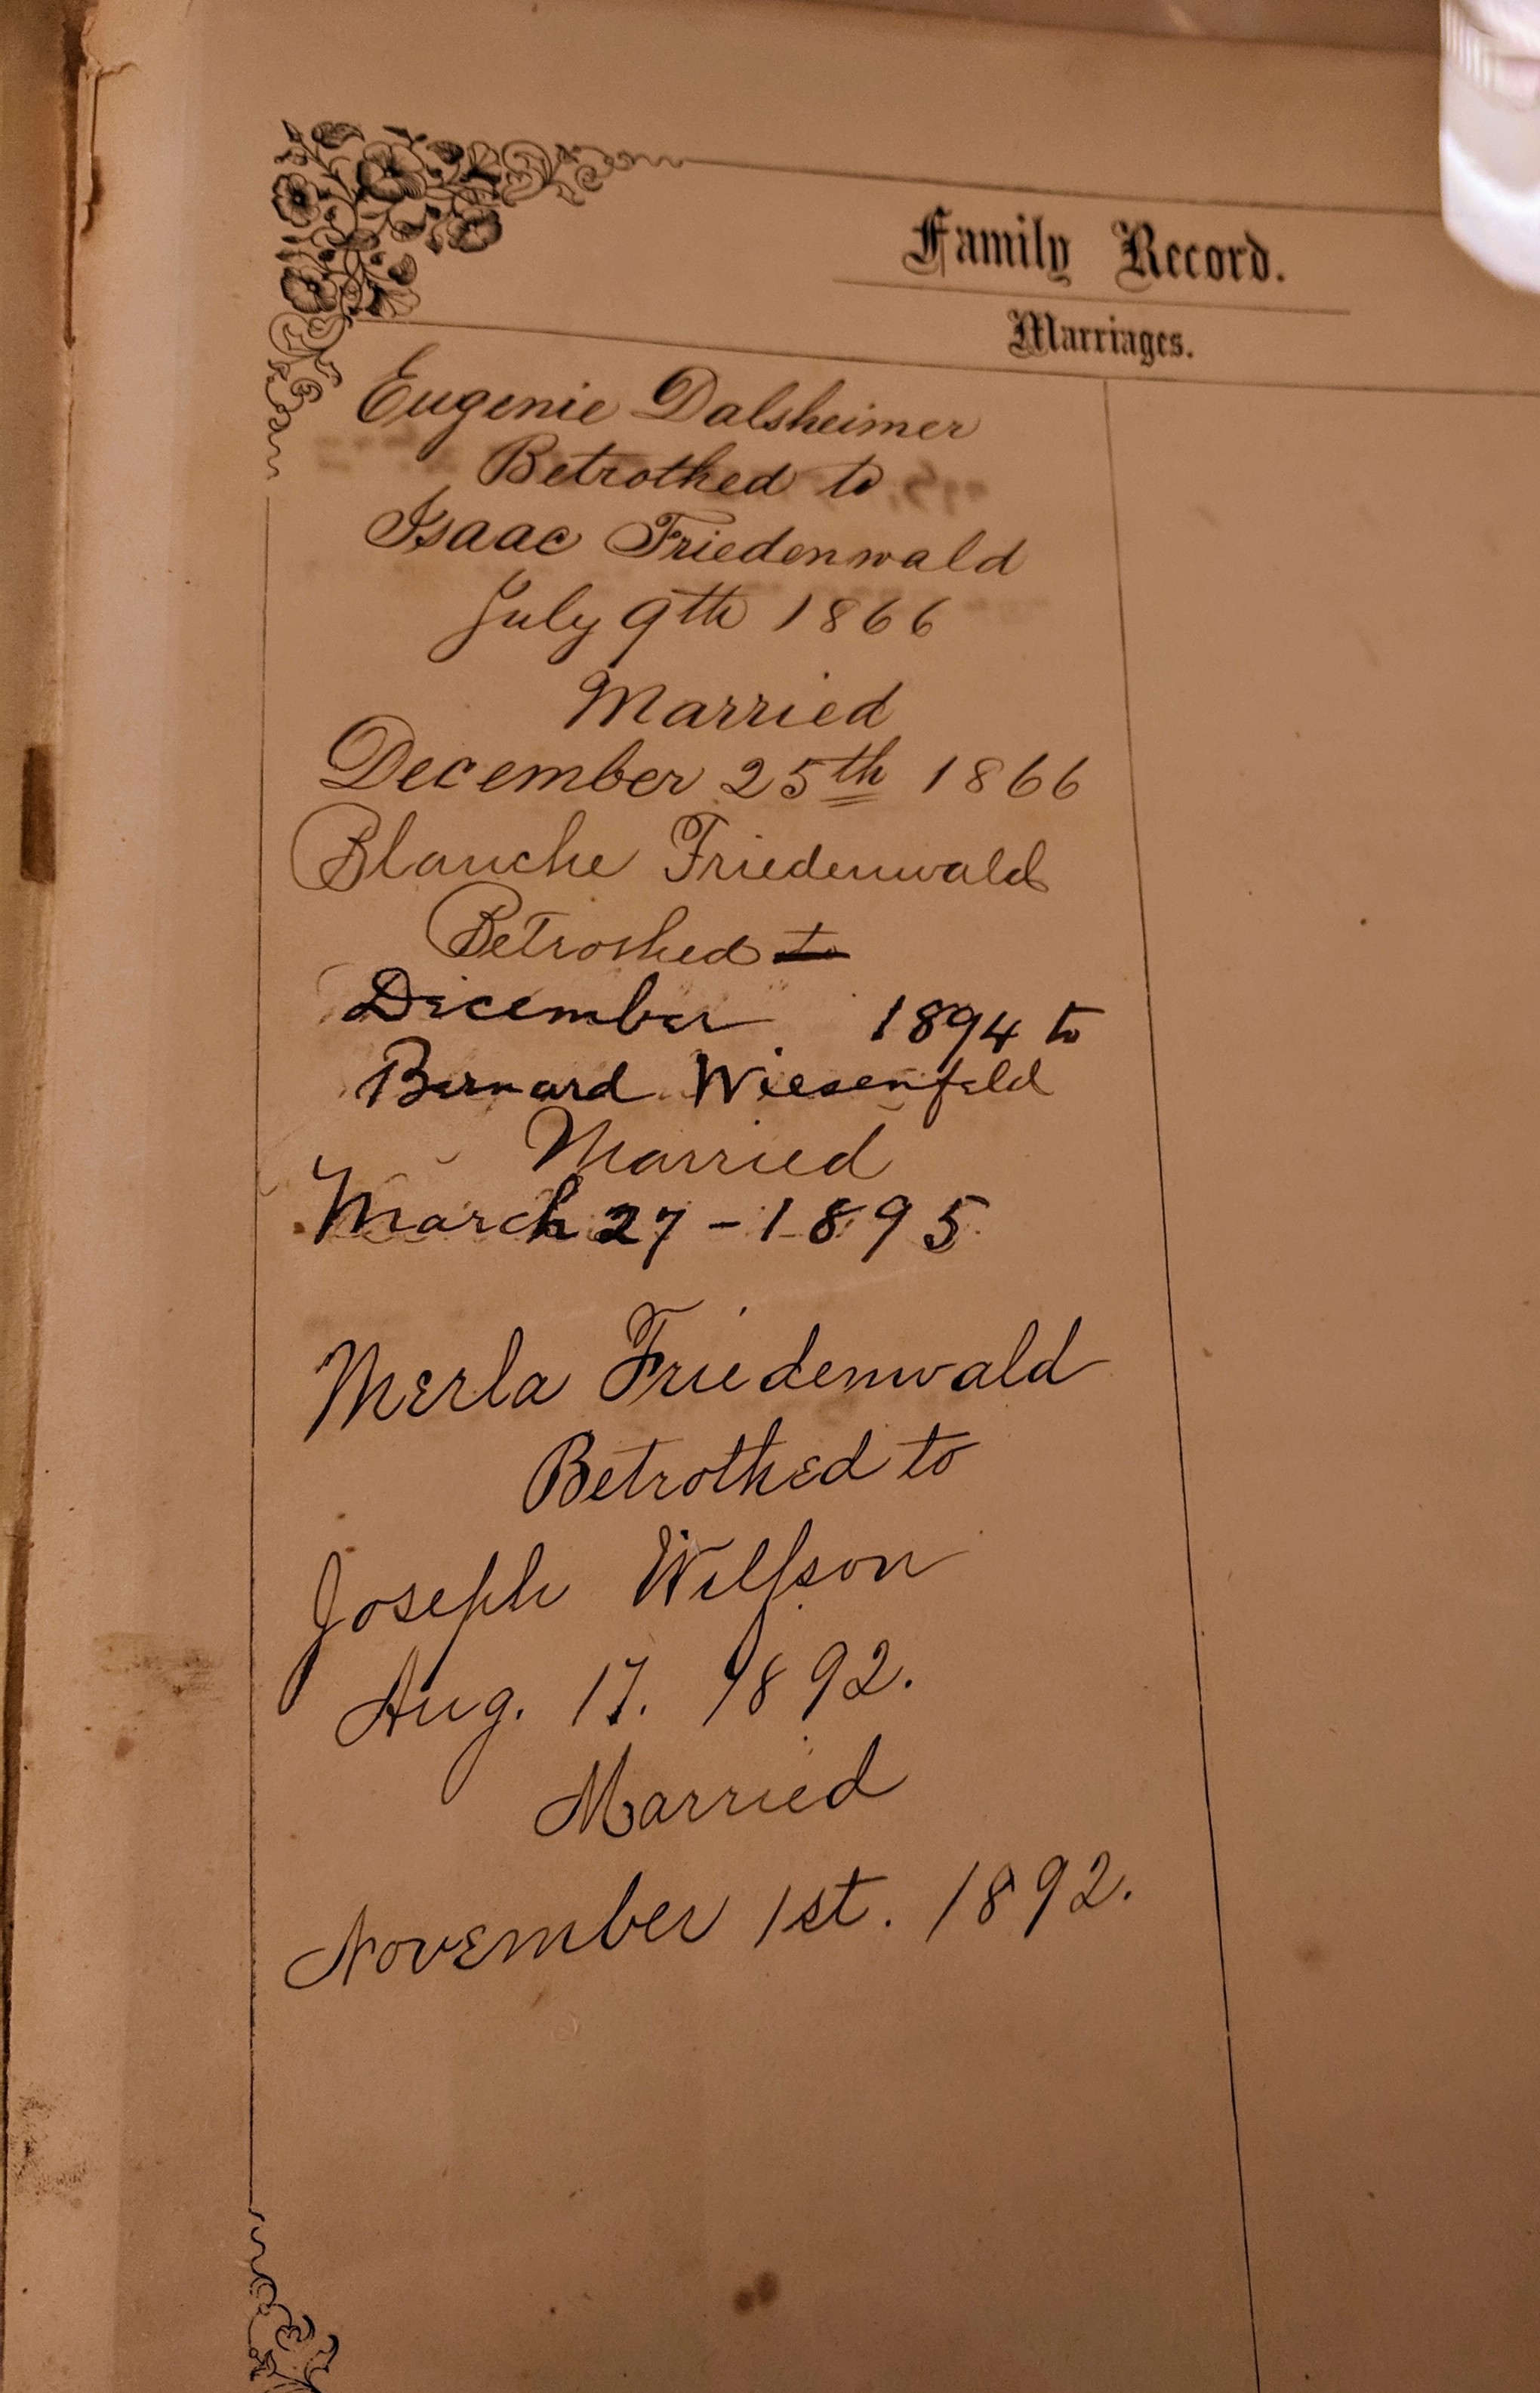 Family Record.
Marriages.
Eugenie Dalsheimer
Betrothed to
Isaac Friedenwald
July 9th 1866
Married
December 25th 1866
Blanche Friedenwald
Betroshed to
December 1894 to
Bernard Wiesenfeld
Married
March 27 - 1895
Merla Friedenwald
Betrothed to
Joseph
Aug. 17. 1892.
Married
November 1st. 1892.